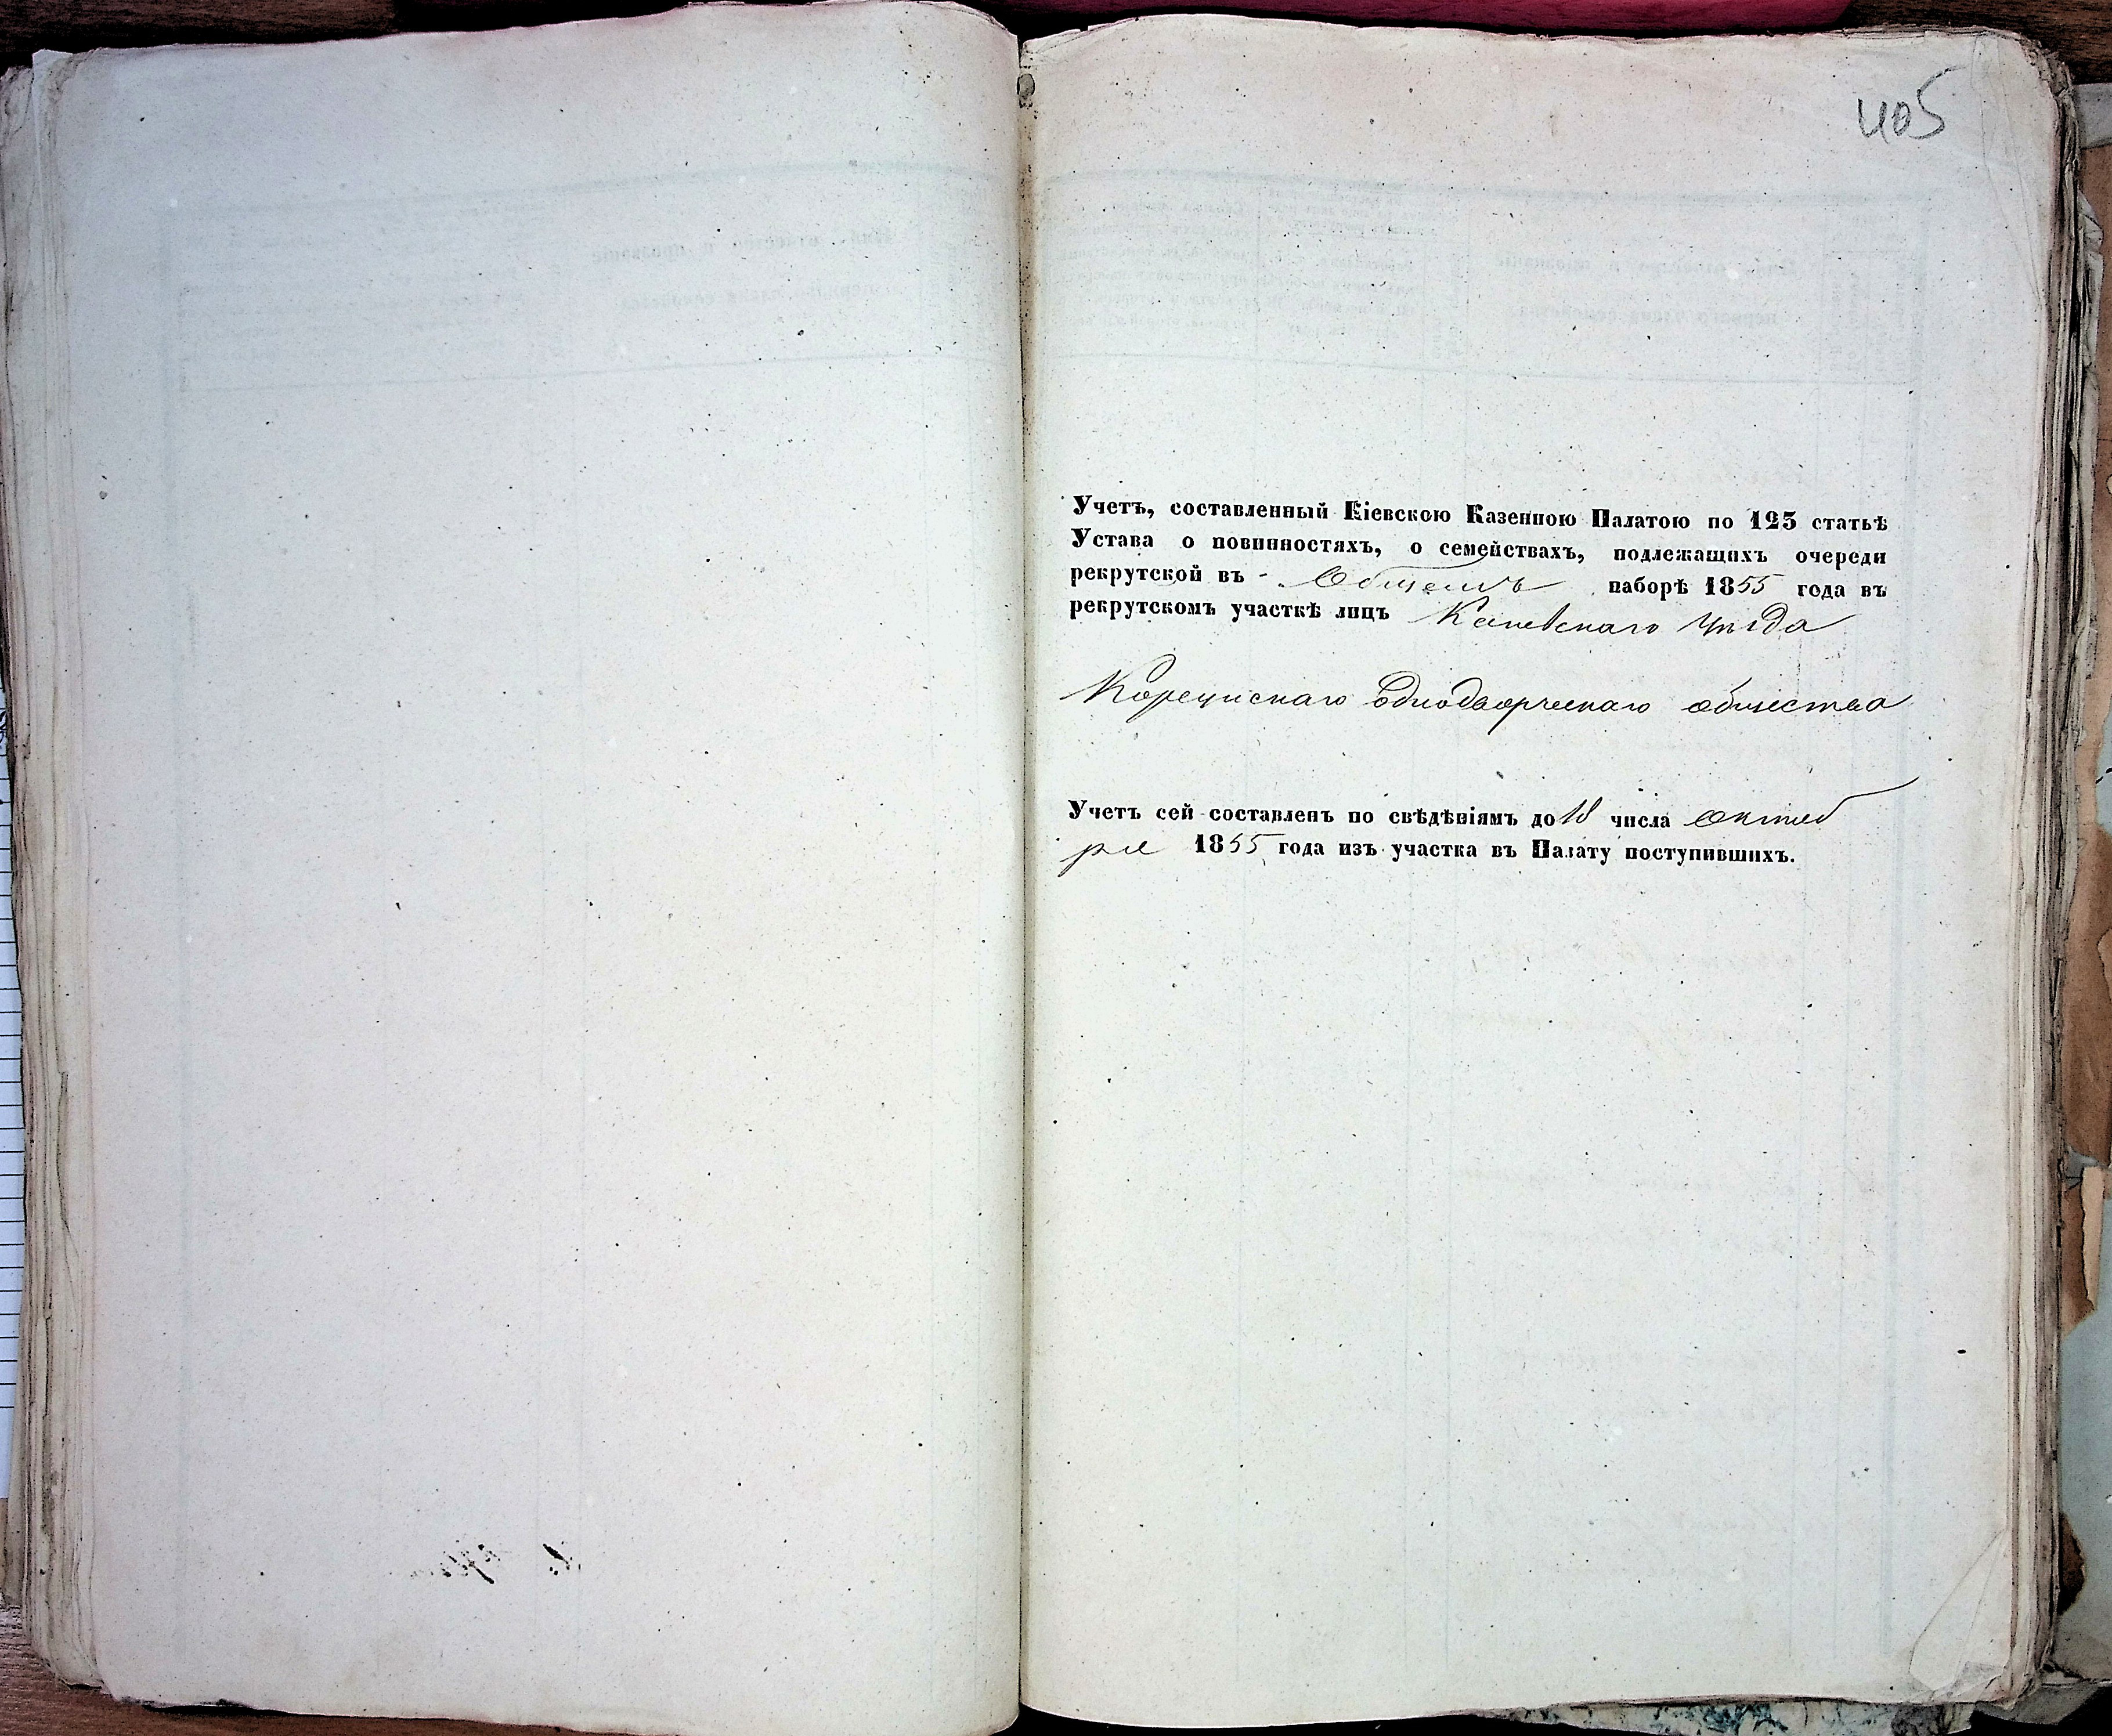 405
Учетъ, составленный Кіевскою Казенною Палатою по 123 статьѣ
Устава о повинностяхъ, о семействахъ, подлежащихъ очереди
рекрутской въ Общемъ наборѣ 1855 года въ
рекрутскомъ участкѣ лицъ Каневскаго уѣзда
однодворческаго общества
Учетъ сей составленъ по свѣдѣніямъ до 18 числа Октяб
ря 1855 года изъ участка въ Палату поступившихъ.